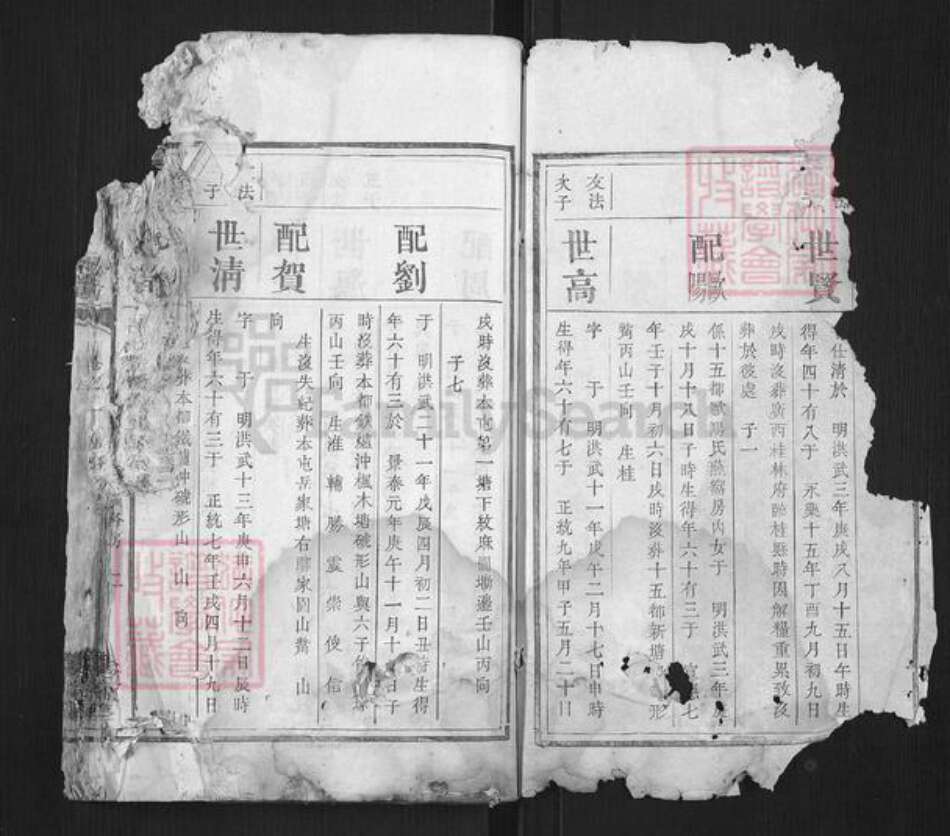 世賢
仕清於 明洪武三年庚戌八月十五日午時生
得年四十有八于 永樂十五年丁酉九月初九日
戌時沒葬廣西桂林府臨桂縣時因解糧重累致沒
葬於彼處 子一
配歐陽
係十五都歐陽氏燕窩房內女于 明洪武三年
戌十月十八日子時生得年六十有三于 宣德七
年壬子十月初六日戌時沒葬十五都新塘 形
丙山壬向 生桂
友法
次子
世高
字 于 明洪武十一年戊午二月十七日申時
生得年六十有七于 正統九年甲子五月二十日
戌時沒葬本屯第一塘下 壬山丙向
子七
配劉
于 明洪武二十一年戊辰四月初二日丑時生得
年六十有三於 景泰元年庚午十一月十 日子
時沒葬本都鉄爐沖楓木塘 形山與六子
丙山壬向 生淮 輔 勝 震 崇 俊 信
配賀
生沒失紀葬本屯岳家塘右廖家園山 山
向
法
子
世清
字 于 明洪武十三年庚申六月十二日辰時
生得年六十有三于 正統七年壬戌四月十九日
葬本都鐵爐沖 形山 山 向
FamilySearch